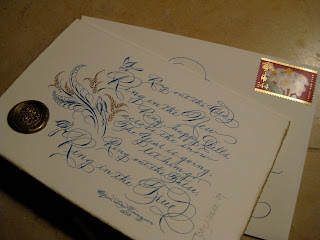 Ring out the Old
Ring in the New
Ring, happy Bells
Across the snow
The Year is going
Let him go
Ring out the False
Ring in the True